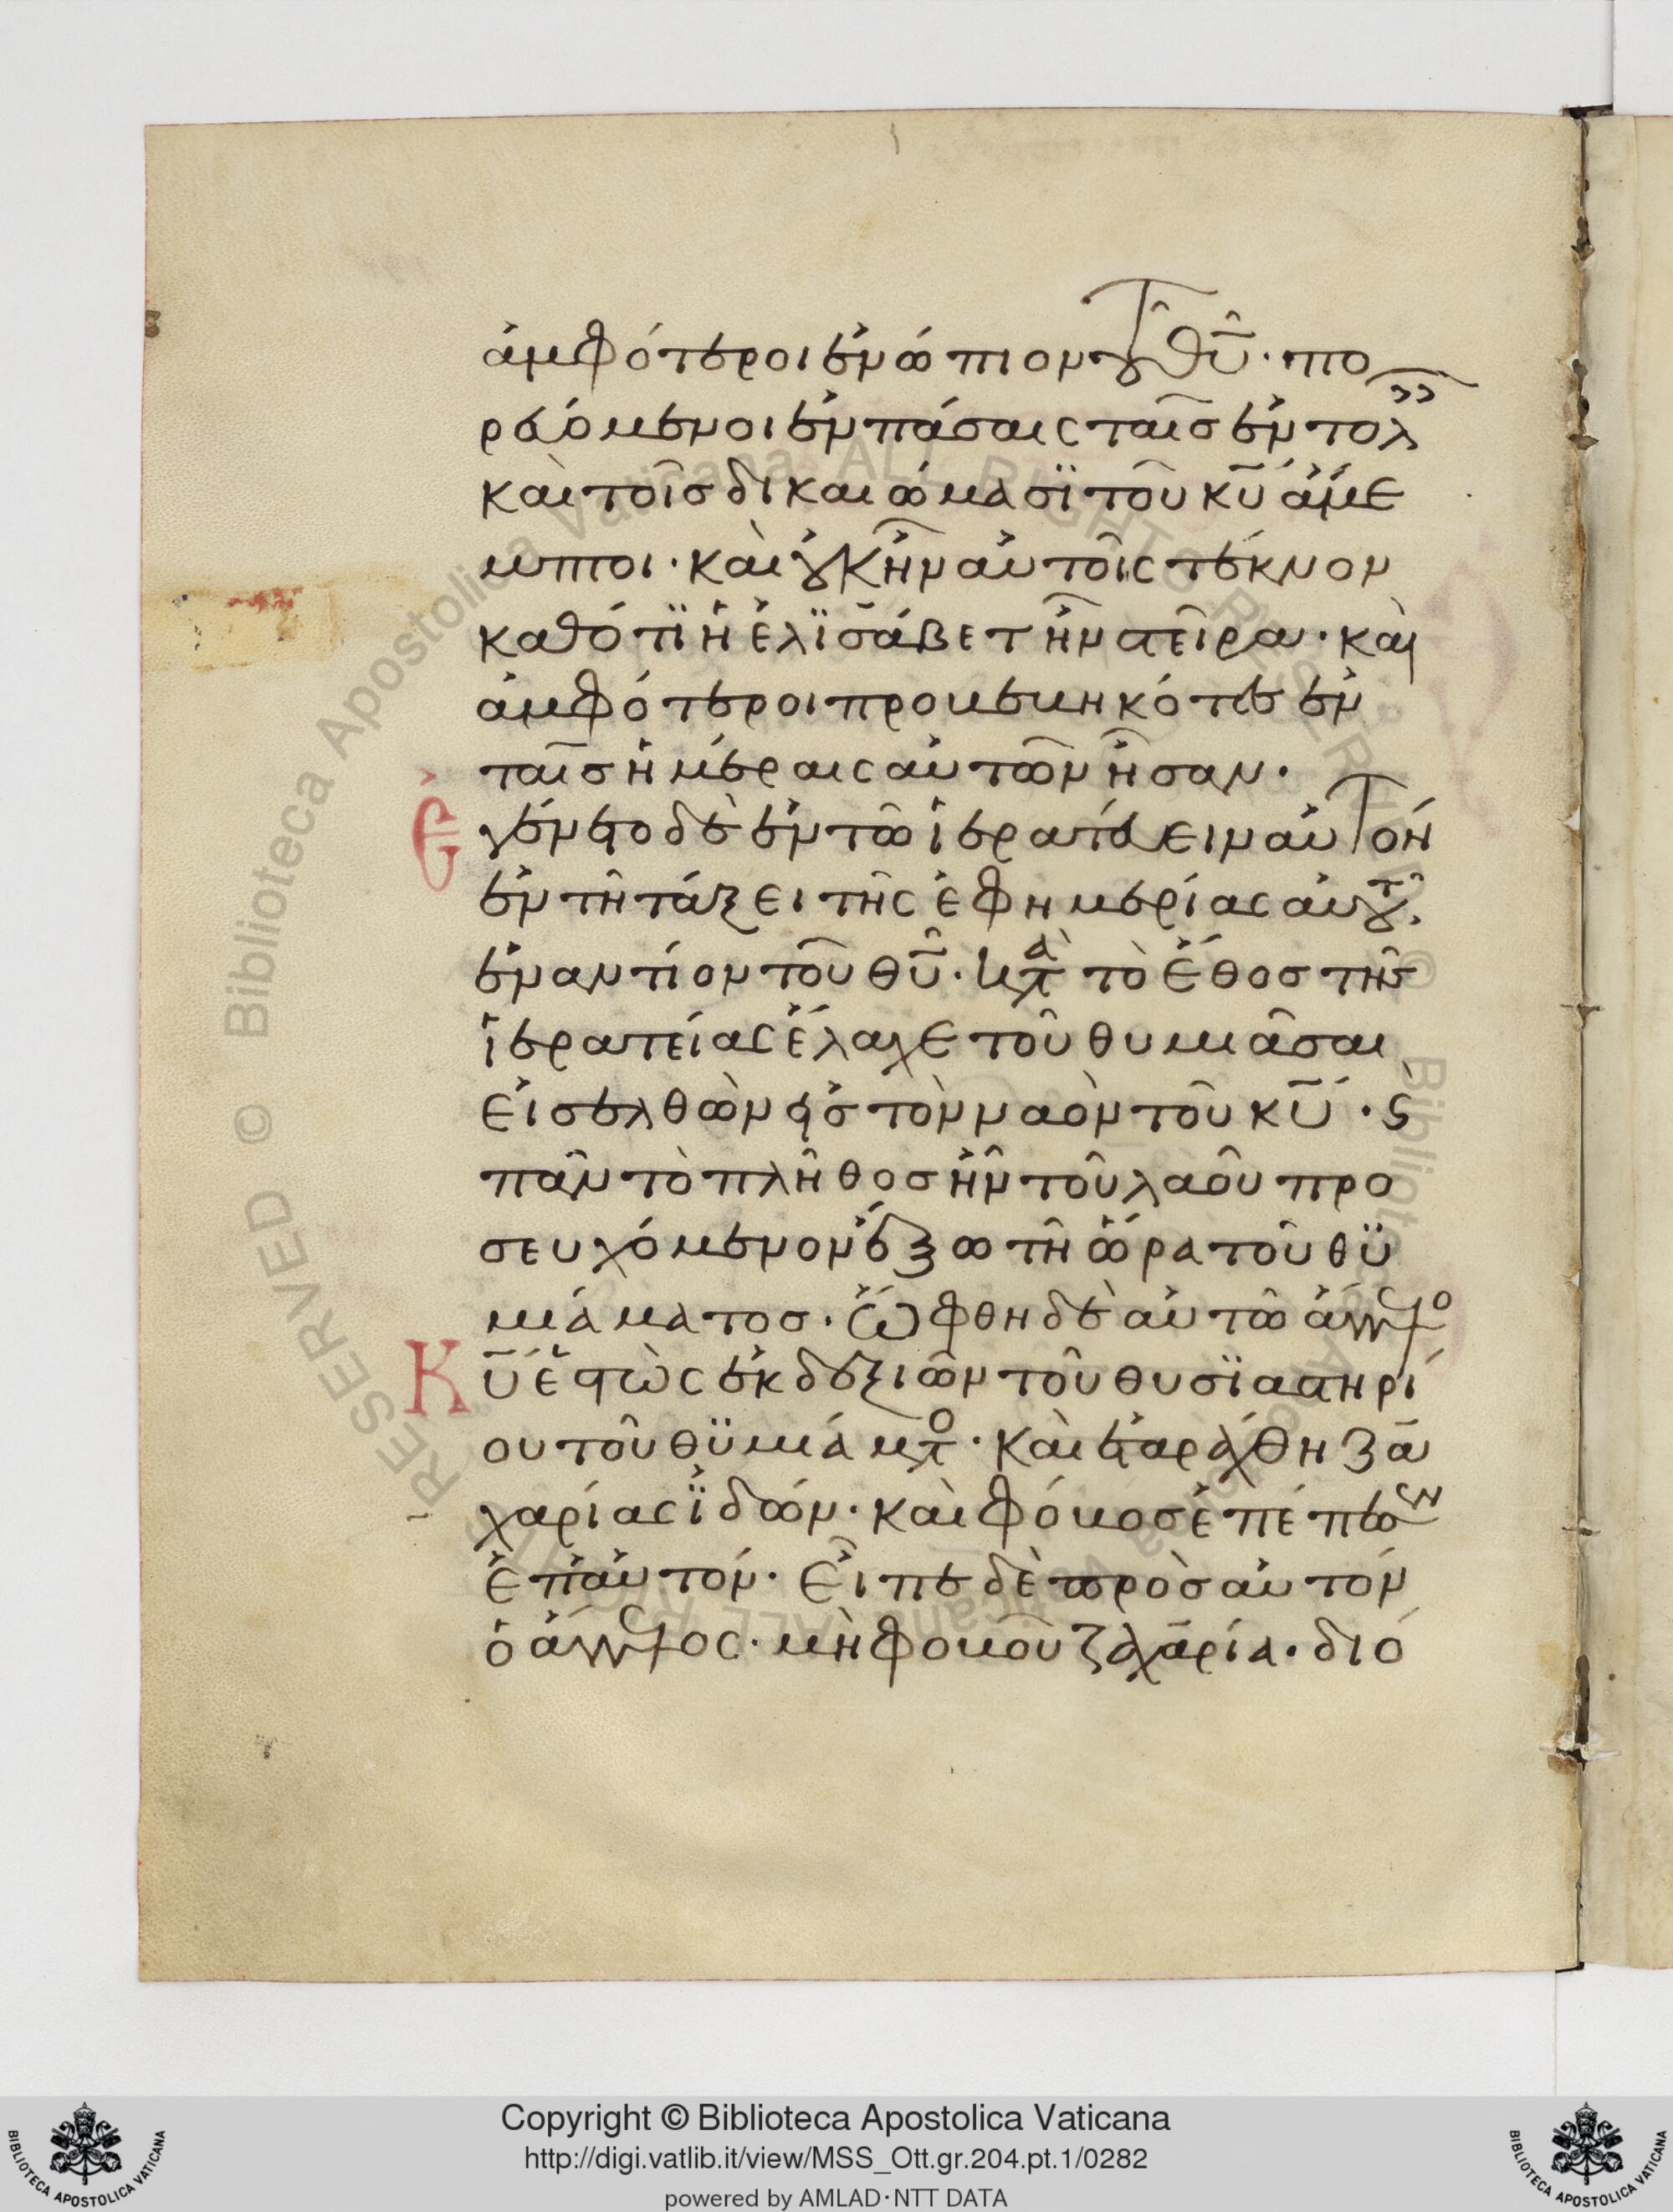 ἀμφότεροι ἐνώπιον τοῦ θῦ· πο
ρευόμενοι ἐν πάσαις ταῖσ ἐντολ
καὶ τοῖσ δικαιώμασϊ τοῦ κῦ ἄμε
μπτοι· καὶ οὐκ ἦν αὐτοῖς τέκνον
καθότϊ ἡ ἐλϊσάβετ ἦν στεῖρα· καὶ
ἀμφότεροι προβεβηκότες ἐν
ταῖσ ἡμέραις αὐτῶν ἦσαν·
Ἐγένετο δὲ ἐν τῶ ἱερατεύειν αὐτὸν
ἐν τῆ τάξει τῆς ἐφημερίας αὐτοῦ,
ἐναντίον τοῦ θῦ· κατὰ τὸ ἔθοσ τῆσ
ἱερατείας ἔλαχε τοῦ θυμιᾶσαι
εἰσελθὼν εἰσ τὸν ναὸν τοῦ κῦ· ϛ
πᾶν τὸ πλῆθοσ ἦν τοῦ λαοῦ προ
σευχόμενον ἔξω τῆ ὥρα τοῦ θϋ
μιάματοσ· ὤφθη δὲ αὐτῶ ἄγγελο
Κῦ ἑστὼς ἐκ δεξιῶν τοῦ θυσϊαστηρί
ου τοῦ θϋμιάματο· καὶ ἐταράχθη ζα
χαρίας ϊδών· καὶ φόβοσ ἐπέπεσεν
ἐπ αὐτόν· Εἶπε δὲ πρὸσ αὐτόν
ὁ ἄγγελος· μὴ φοβοῦ ζαχαρία· διό
Copyright © Biblioteca Apostolica Vaticana
http://digi.vatlib.it/view/MSS_Ott.gr.204.pt.1/0282
powered by AMLAD·NTT DATA